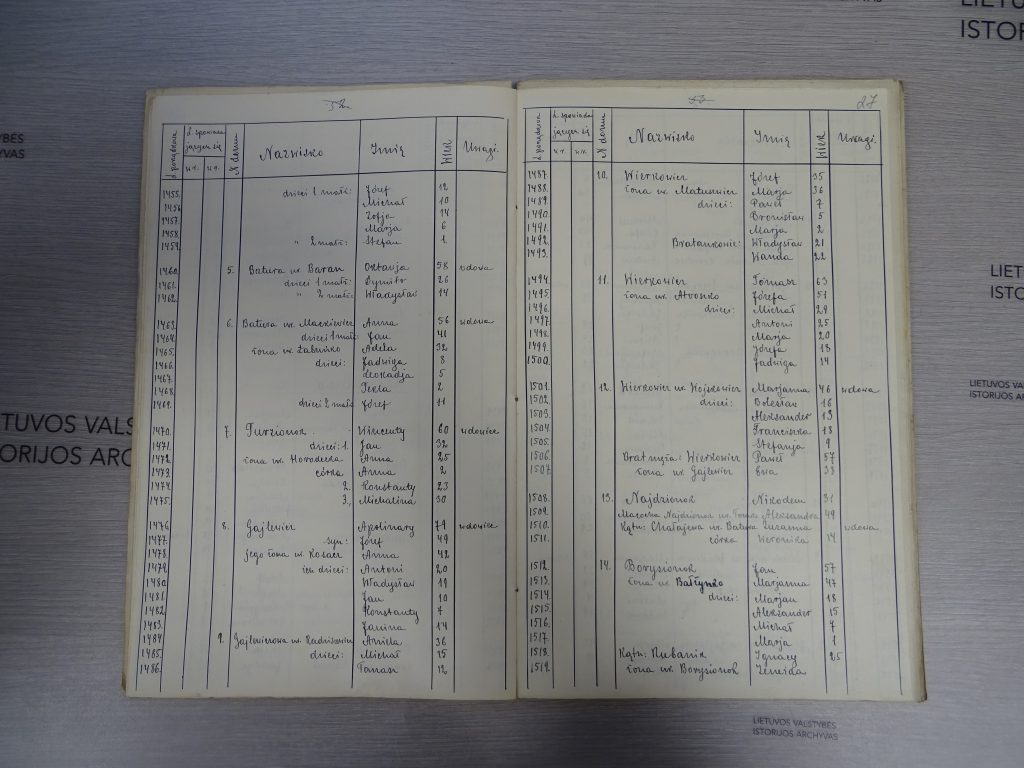 LIETUVOS VALSTYBĖS
ISTORIJOS ARCHYVAS
52
L. porządkowa
L. spowiada
jących się
N domu
Nazwisko
Imię
Wiek
Uwagi.
1455. dzieci 1 małż: Józef 12
1456. Michał 10
1457. Zofja 14
1458. Marja 6
1459. " 2 małż: Stefan 1
1460. 5. Batura ur. Baran Oktawja 58 wdowa
1461. dzieci 1 małż: Dymitr 26
1462. " 2 małż: Władysław 14
1463. 6. Batura ur. Mackiewicz Anna 56 wdowa
1464. dzieci 1 małż Jan 41
1465. żona ur. Żabińko Adela 32
1466. dzieci: Jadwiga 8
1467. Leokadja 5
1468. Tekla 2
1469. dzieci 2 małż Józef 11
1470. 7. Turzionok Wincenty 60 wdowiec
1471. dzieci: 1. Jan 32
1472. żona ur. Horodecka Anna 25
1473. córka Anna 2
1474. 2. Konstanty 23
1475. 3. Michalina 30
1476. 8. Gajlewicz Apolinary 79 wdowiec
1477. syn: Józef 49
1478. jego żona ur. Kozacz Anna 42
1479. ich dzieci: Antoni 20
1480. Władysław 19
1481. Jan 10
1482. Konstanty 7
1483. Janina 14
1484. 9. Gajlewiczowa ur. Aniela 36
1485. dzieci: Michał 15
1486. Tomasz 12
53
27
L. porządkowa
L. spowiada
jących się
N domu
Nazwisko
Imię
Wiek
Uwagi.
1487. 10. Wierkowicz Józef 35
1488. żona ur. Matusewicz Marja 36
1489. dzieci: Paweł 7
1490. Bronisław 5
1491. Marja 2
1492. Bratankowie: Władysław 21
1493. Wanda 22
1494. 11. Wierkowicz Tomasz 63
1495. żona ur. Józefa 51
1496. dzieci: Michał 29
1497. Antoni 25
1498. Marja 20
1499. Józefa 18
1500. Jadwiga 14
1501. 12. Wierkowicz ur. Wojtkowicz Marjanna 46 wdowa
1502. dzieci: Bolesław 16
1503. Aleksander 13
1504. Franciszka 18
1505. Stefanja 9
1506. brat męża: Wierkowicz Paweł 57
1507. żona ur. Gajlewicz Ewa 33
1508. 13. Najdzionok Nikodem 31
1509. Macocha Najdzionok ur. Aleksandra 49
1510. Kątn: Chałajewa ur. Batura Zuzanna wdowa
1511. córka Weronika 14
1512. 14. Borysionok Jan 57
1513. żona ur. Bałtynko Marjanna 47
1514. dzieci: Marjan 18
1515. Aleksander 15
1516. Michał 7
1517. Marja 1
1518. Kątn: Rubanik Ignacy 25
1519. żona ur. Borysionok Zeneida
LIETUVOS VALSTYBĖS
ISTORIJOS ARCHYVAS